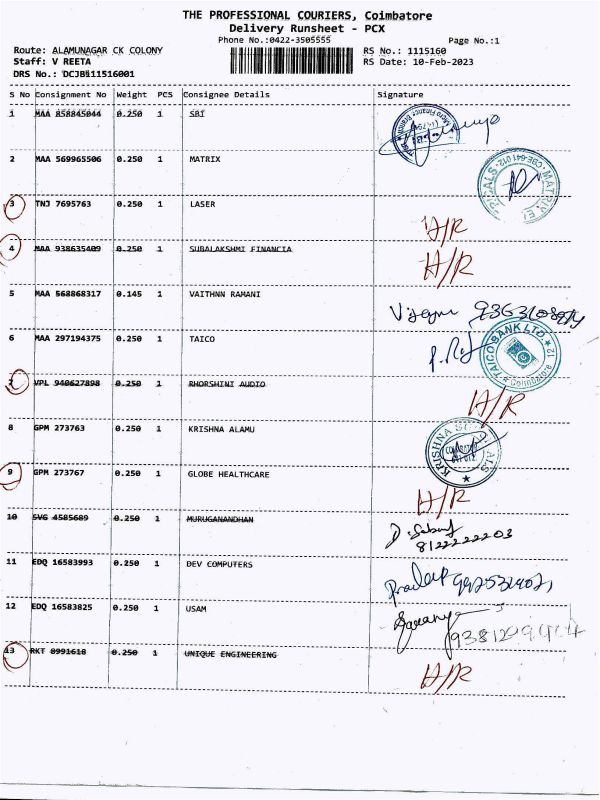 THE PROFESSIONAL COURIERS, Coimbatore
Delivery Runsheet - PCX
Phone No.:0422-3505555
Page No.:1
Route: ALAMUNAGAR CK COLONY
RS No.: 1115160
Staff: V REETA
RS Date: 10-Feb-2023
DRS No.: DCJB111516001
S No Consignment No Weight PCS Consignee Details Signature
1 MAA 858845044 0.250 1 SBI
2 MAA 569965506 0.250 1 MATRIX
3 TNJ 7695763 0.250 1 LASER
H/R
4 MAA 938635409 0.250 1 SUBALAKSHMI FINANCIA
H/R
5 MAA 568868317 0.145 1 VAITHNN RAMANI
6 MAA 297194375 0.250 1 TAICO
TAICO BANK LTD.
Coimbatore 12
7 VPL 940627898 0.250 1 RHORSHINI AUDIO
H/R
8 GPM 273763 0.250 1 KRISHNA ALAMU
9 GPM 273767 0.250 1 GLOBE HEALTHCARE
H/R
10 SVG 4585689 0.250 1 MURUGANANDHAN
8122222203
11 EDQ 16583993 0.250 1 DEV COMPUTERS
12 EDQ 16583825 0.250 1 USAM
13 RKT 8991618 0.250 1 UNIQUE ENGINEERING
H/R